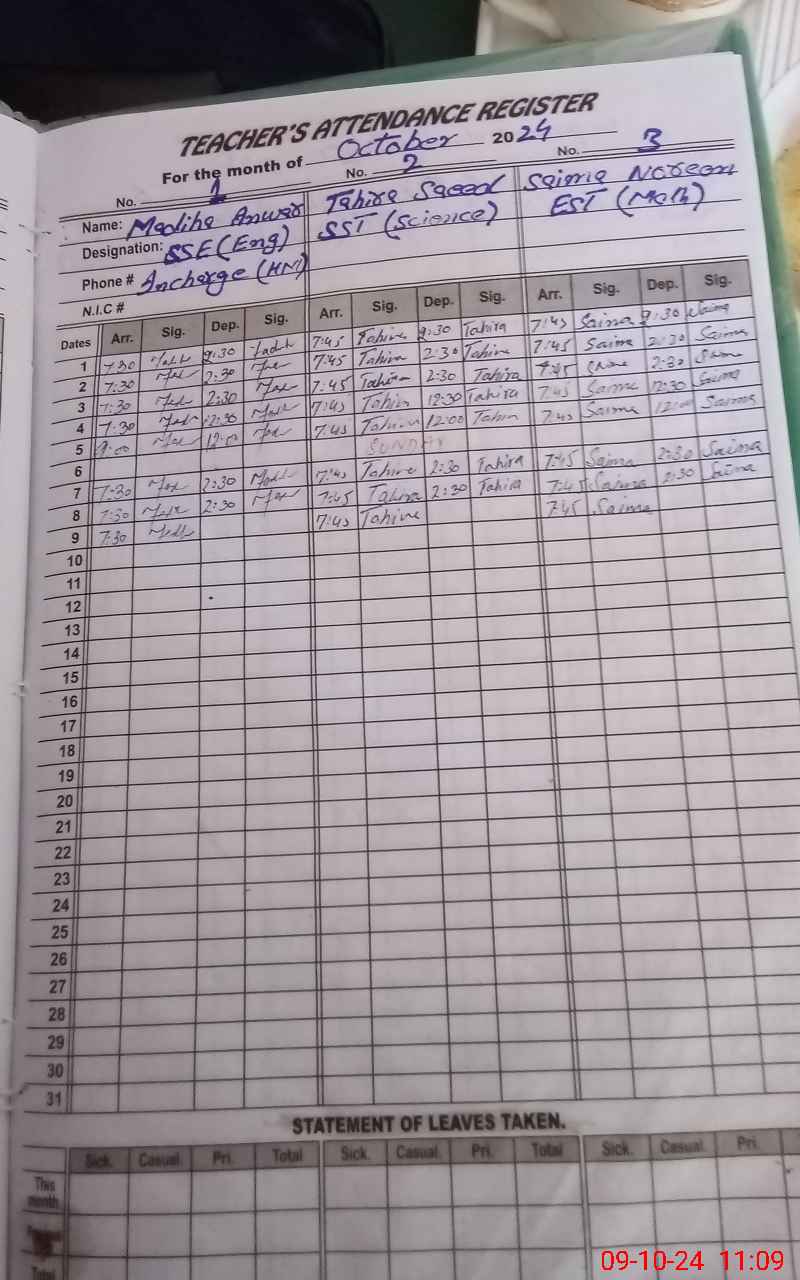 TEACHER'S ATTENDANCE REGISTER
For the month of October 2024
No. 1 No. 2 No. 3
Name: Madiha Anwar Tahira Saeed Saima Noreen
Designation: SSE (Eng) SST (Science) EST (Math)
Phone # Incharge (HM)
N.I.C #
Dates Arr. Sig. Dep. Sig. Arr. Sig. Dep. Sig. Arr. Sig. Dep. Sig.
1 7:30 :30 7:45 Tahira :30 Tahira 7:45 Saima :30 Saima
2 7:30 2:30 7:45 Tahira 2:30 Tahira 7:45 Saima 2:30 Saima
3 7:30 2:30 7:45 Tahira 2:30 Tahira 7:45 Saima 2:30 Saima
4 7:30 12:30 7:45 Tahira 12:30 Tahira 7:45 Saima 12:30 Saima
5 12:00 7:45 Tahira 12:00 Tahira 7:45 Saima 12:00 Saima
6 SUNDAY
7 7:30 2:30 7:45 Tahira 2:30 Tahira 7:45 Saima 2:30 Saima
8 7:30 2:30 7:45 Tahira 2:30 Tahira 7:45 Saima 2:30 Saima
9 7:30 7:45 Tahira 7:45 Saima
10
11
12
13
14
15
16
17
18
19
20
21
22
23
24
25
26
27
28
29
30
31
STATEMENT OF LEAVES TAKEN.
Sick. Casual. Pri. Total Sick. Casual. Pri. Total Sick. Casual. Pri.
This month
Total
09-10-24 11:09